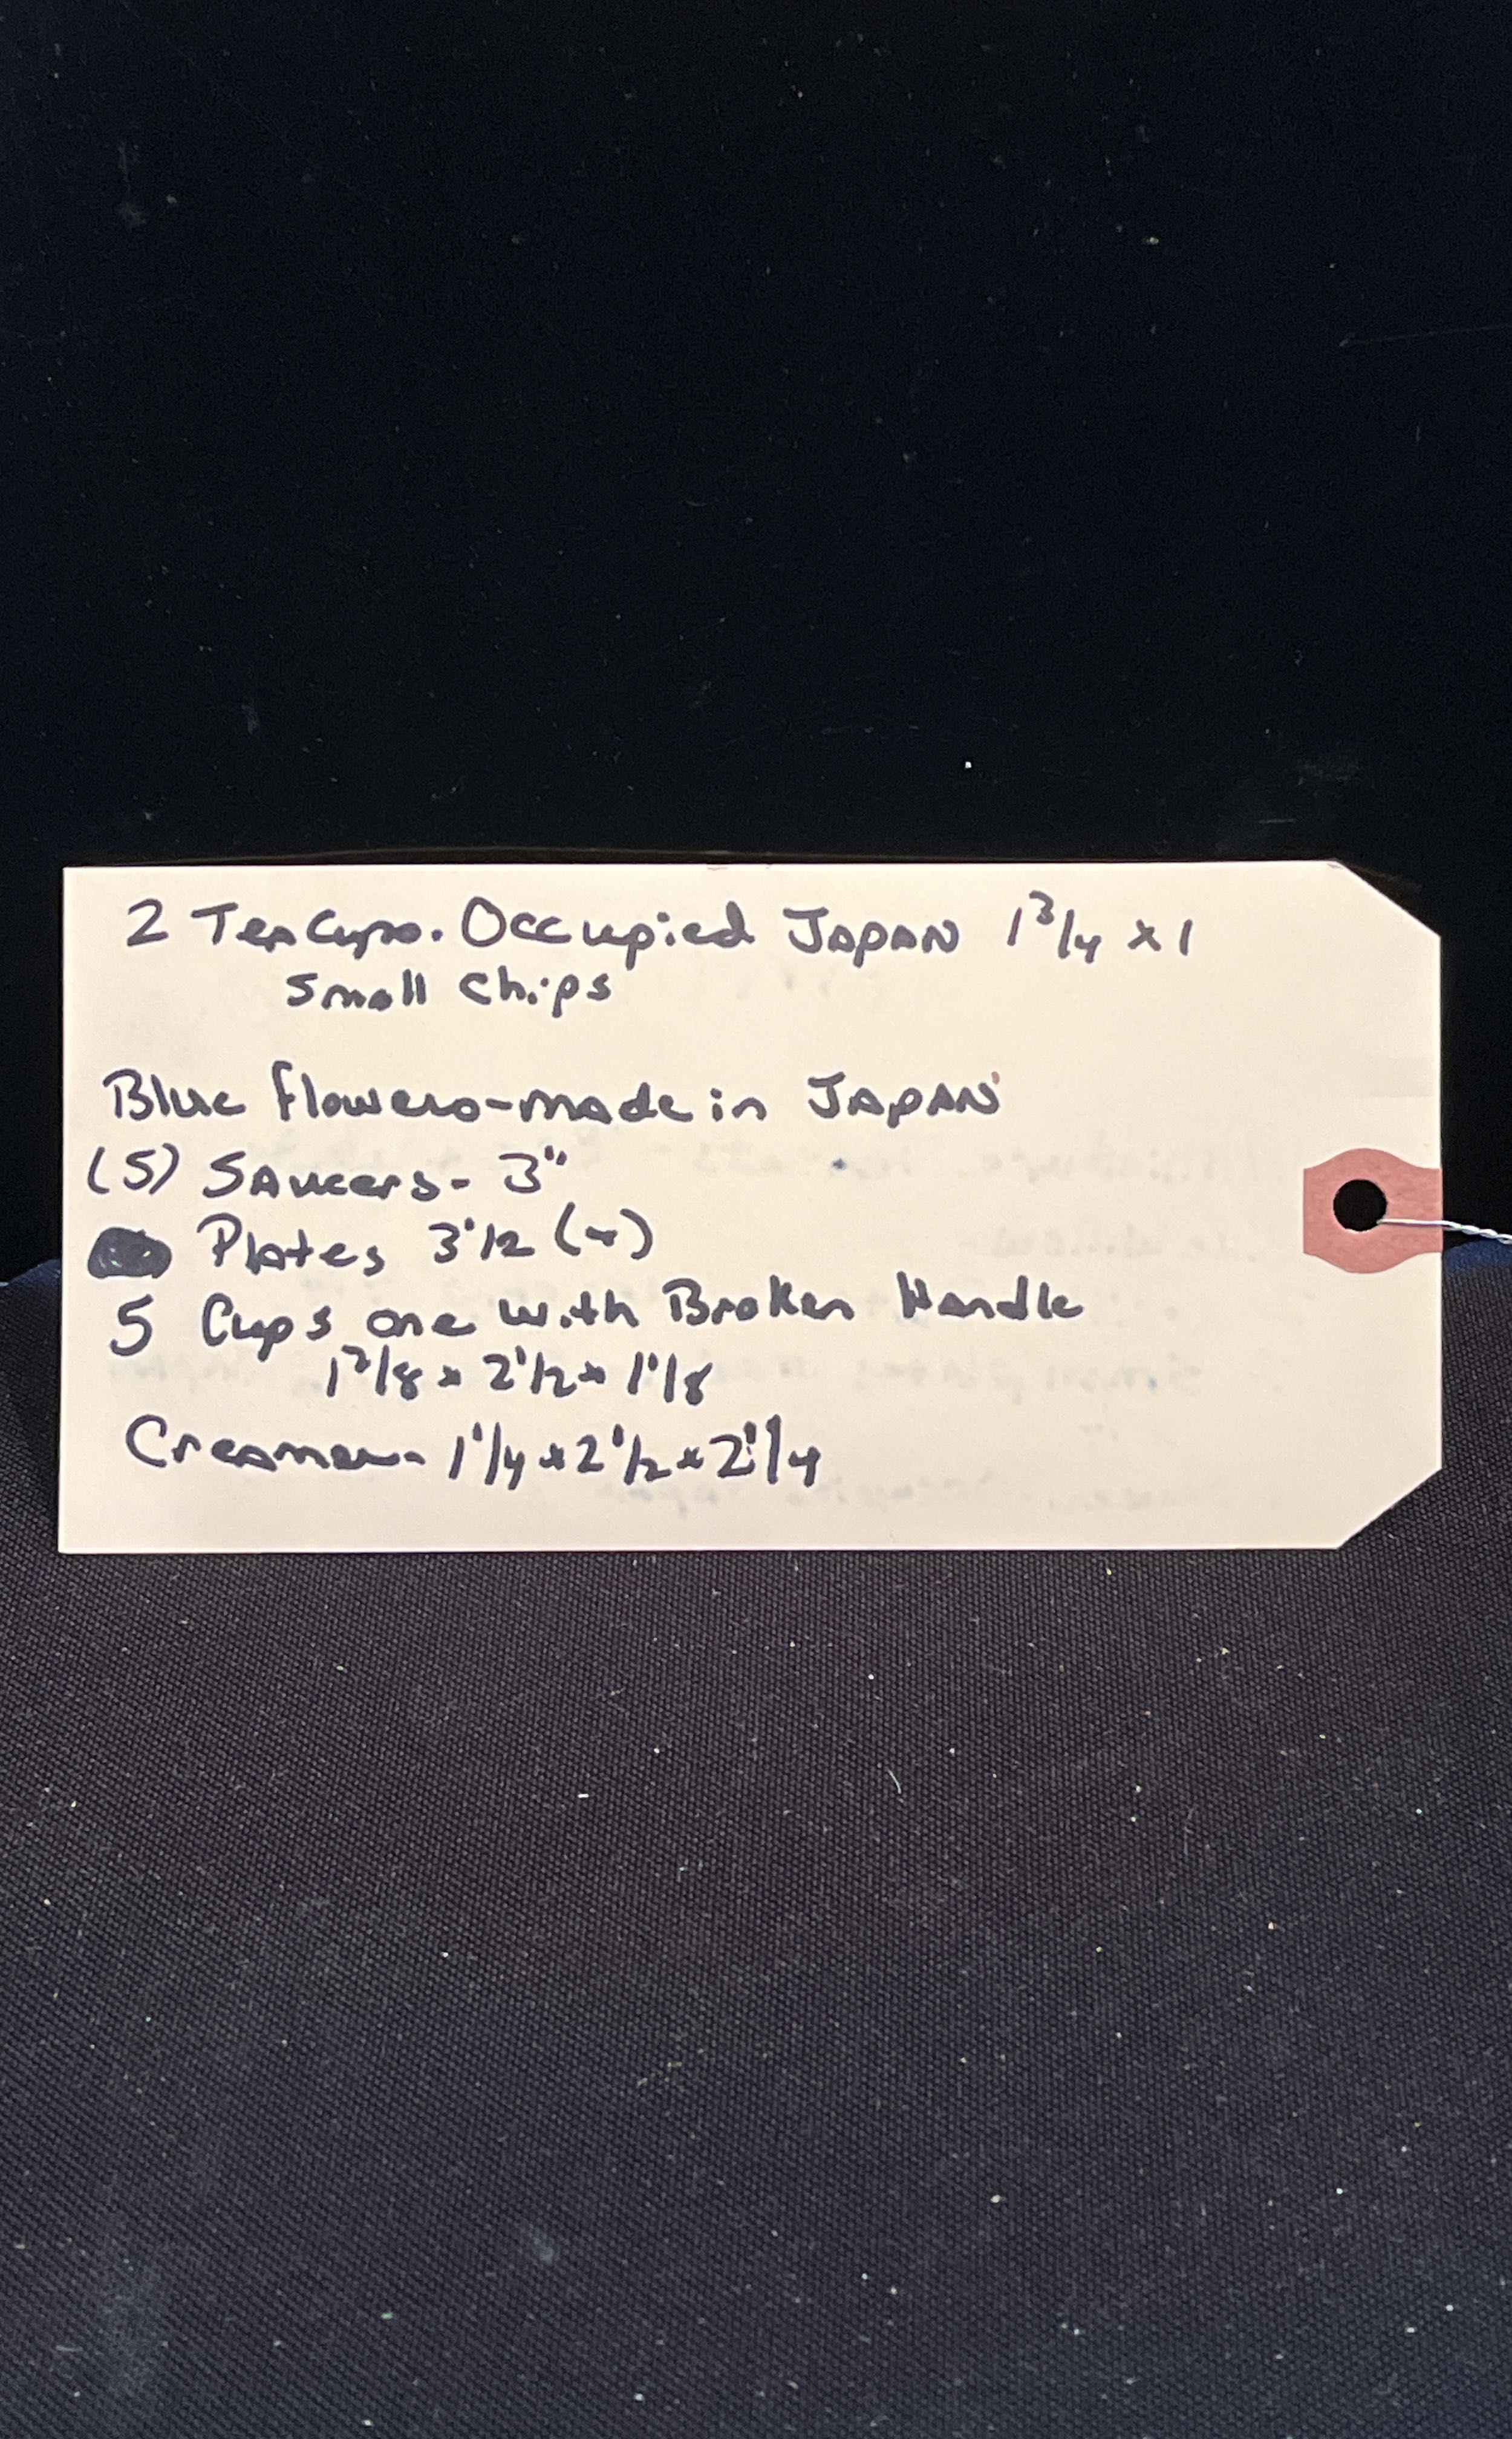 2 Tea Cups. Occupied JAPAN 1 3/4 x 1
Small Chips
Blue flowers - made in JAPAN
(5) Saucers - 3"
Plates 3 1/2 (4)
5 Cups one with Broken Handle
x 2 1/2 x 1 1/8
Creamer - 1 1/4 x 2 1/2 x 2 1/4